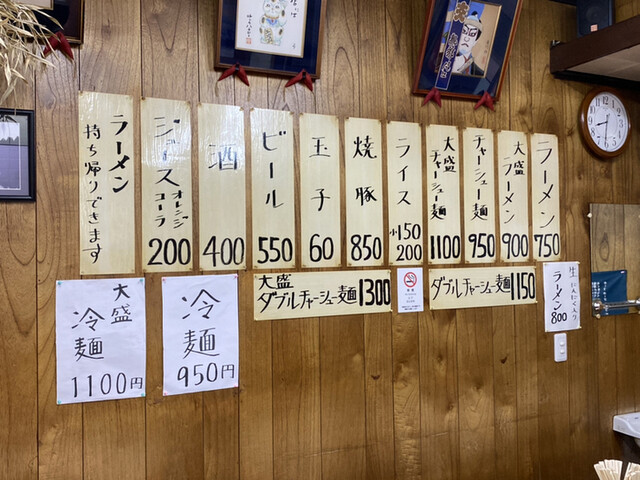 ラーメン
750
大盛
ラーメン
900
チャーシュー麺
950
大盛
チャーシュー麺
1100
ライス
小150
200
焼豚
850
玉子
60
ビール
550
酒
400
ジュース
オレンジ
コーラ
200
ラーメン
持ち帰りできます
生にんにく入り
ラーメン
800
ダブルチャーシュー麺1150
大盛
ダブルチャーシュー麺1300
冷麺
950円
大盛
冷麺
1100円